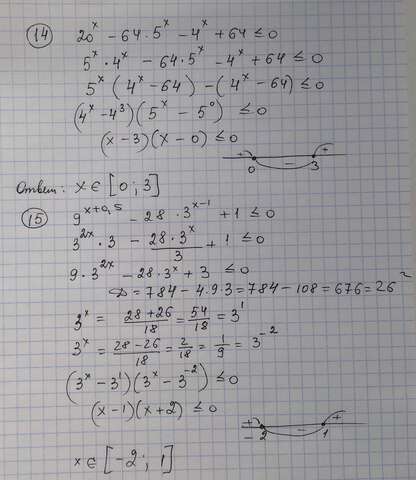 14 20^x - 64·5^x - 4^x + 64 ≤ 0
5^x · 4^x - 64·5^x - 4^x + 64 ≤ 0
5^x (4^x - 64) - (4^x - 64) ≤ 0
(4^x - 4^3)(5^x - 5^0) ≤ 0
(x - 3)(x - 0) ≤ 0
+ 0 - 3 +
Ответ: x ∈ [0; 3]
15 9^(x+0,5) - 28 · 3^(x-1) + 1 ≤ 0
3^(2x) · 3 - 28·3^x/3 + 1 ≤ 0
9·3^(2x) - 28·3^x + 3 ≤ 0
D = 784 - 4·9·3 = 784 - 108 = 676 = 26^2
3^x = (28+26)/18 = 54/18 = 3^1
3^x = (28-26)/18 = 2/18 = 1/9 = 3^(-2)
(3^x - 3^1)(3^x - 3^(-2)) ≤ 0
(x-1)(x+2) ≤ 0
+ -2 - 1 +
x ∈ [-2; 1]